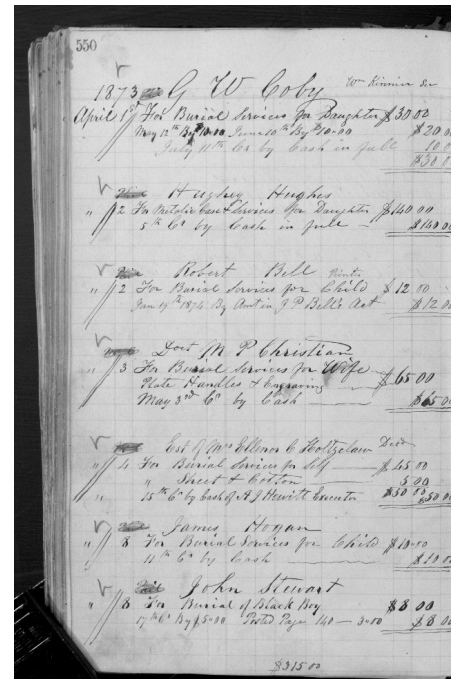 550
1873 G W Coby Wm Kinnier Sec
April 1st For Burial Services for Daughter $30 00
May 12th By $10.00 June 10th By $10.00 $20 00
July 11th Cr by Cash in full 10 00
$30 00
Hughey Hughes
" 2 For Metalic Case & Services for Daughter $140 00
5th Cr by Cash in full — $140 00
Robert Bell
" 2 For Burial Services for Child $12 00
Jan 19th 1874 By Amt in J P Bell's Act — $12 00
Doct M P Christian
" 3 For Burial Services for Wife
Plate Handles & Engraving $65 00
May 3rd Cr by Cash $65 00
Est of Mrs Ellenor C Holtzclaw Decd
" 4 For Burial Services for Self — $45 00
" " Sheet & Cotton — 5 00
" 15th Cr by Cash of A J Hewitt Executor $50 00 $50 00
James Hogan
" 8 For Burial Services for Child $10.00
11th Cr by Cash $10 00
John Stewart
" 8 For Burial of Black Boy $8 00
17th Cr By $5.00 Posted Page 140 — 3.00 $8 00
$315 00